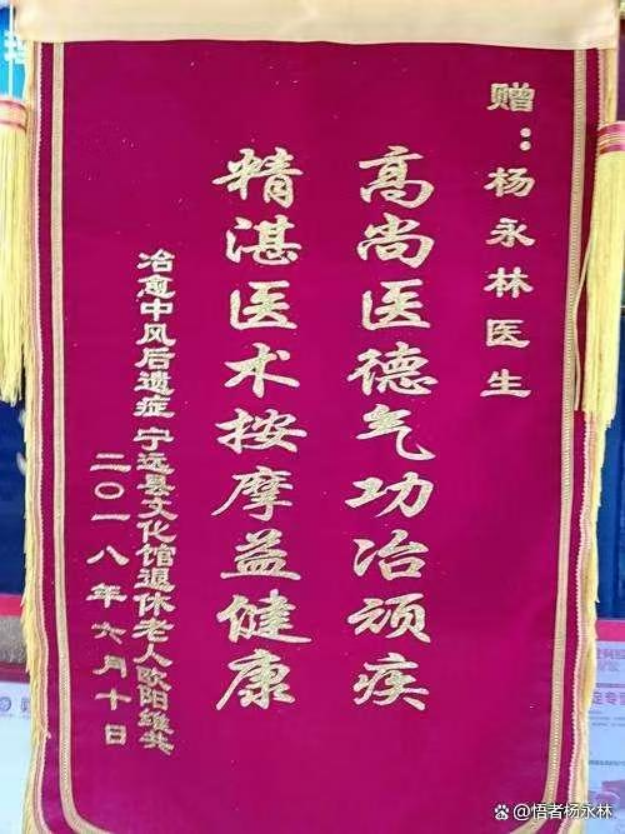 赠：杨永林医生
高尚医德气功冶顽疾
精湛医术按摩益健康
冶愈中风后遗症 宁远县文化馆退休老人欧阳维共
二〇一八年六月十日
@悟者杨永林